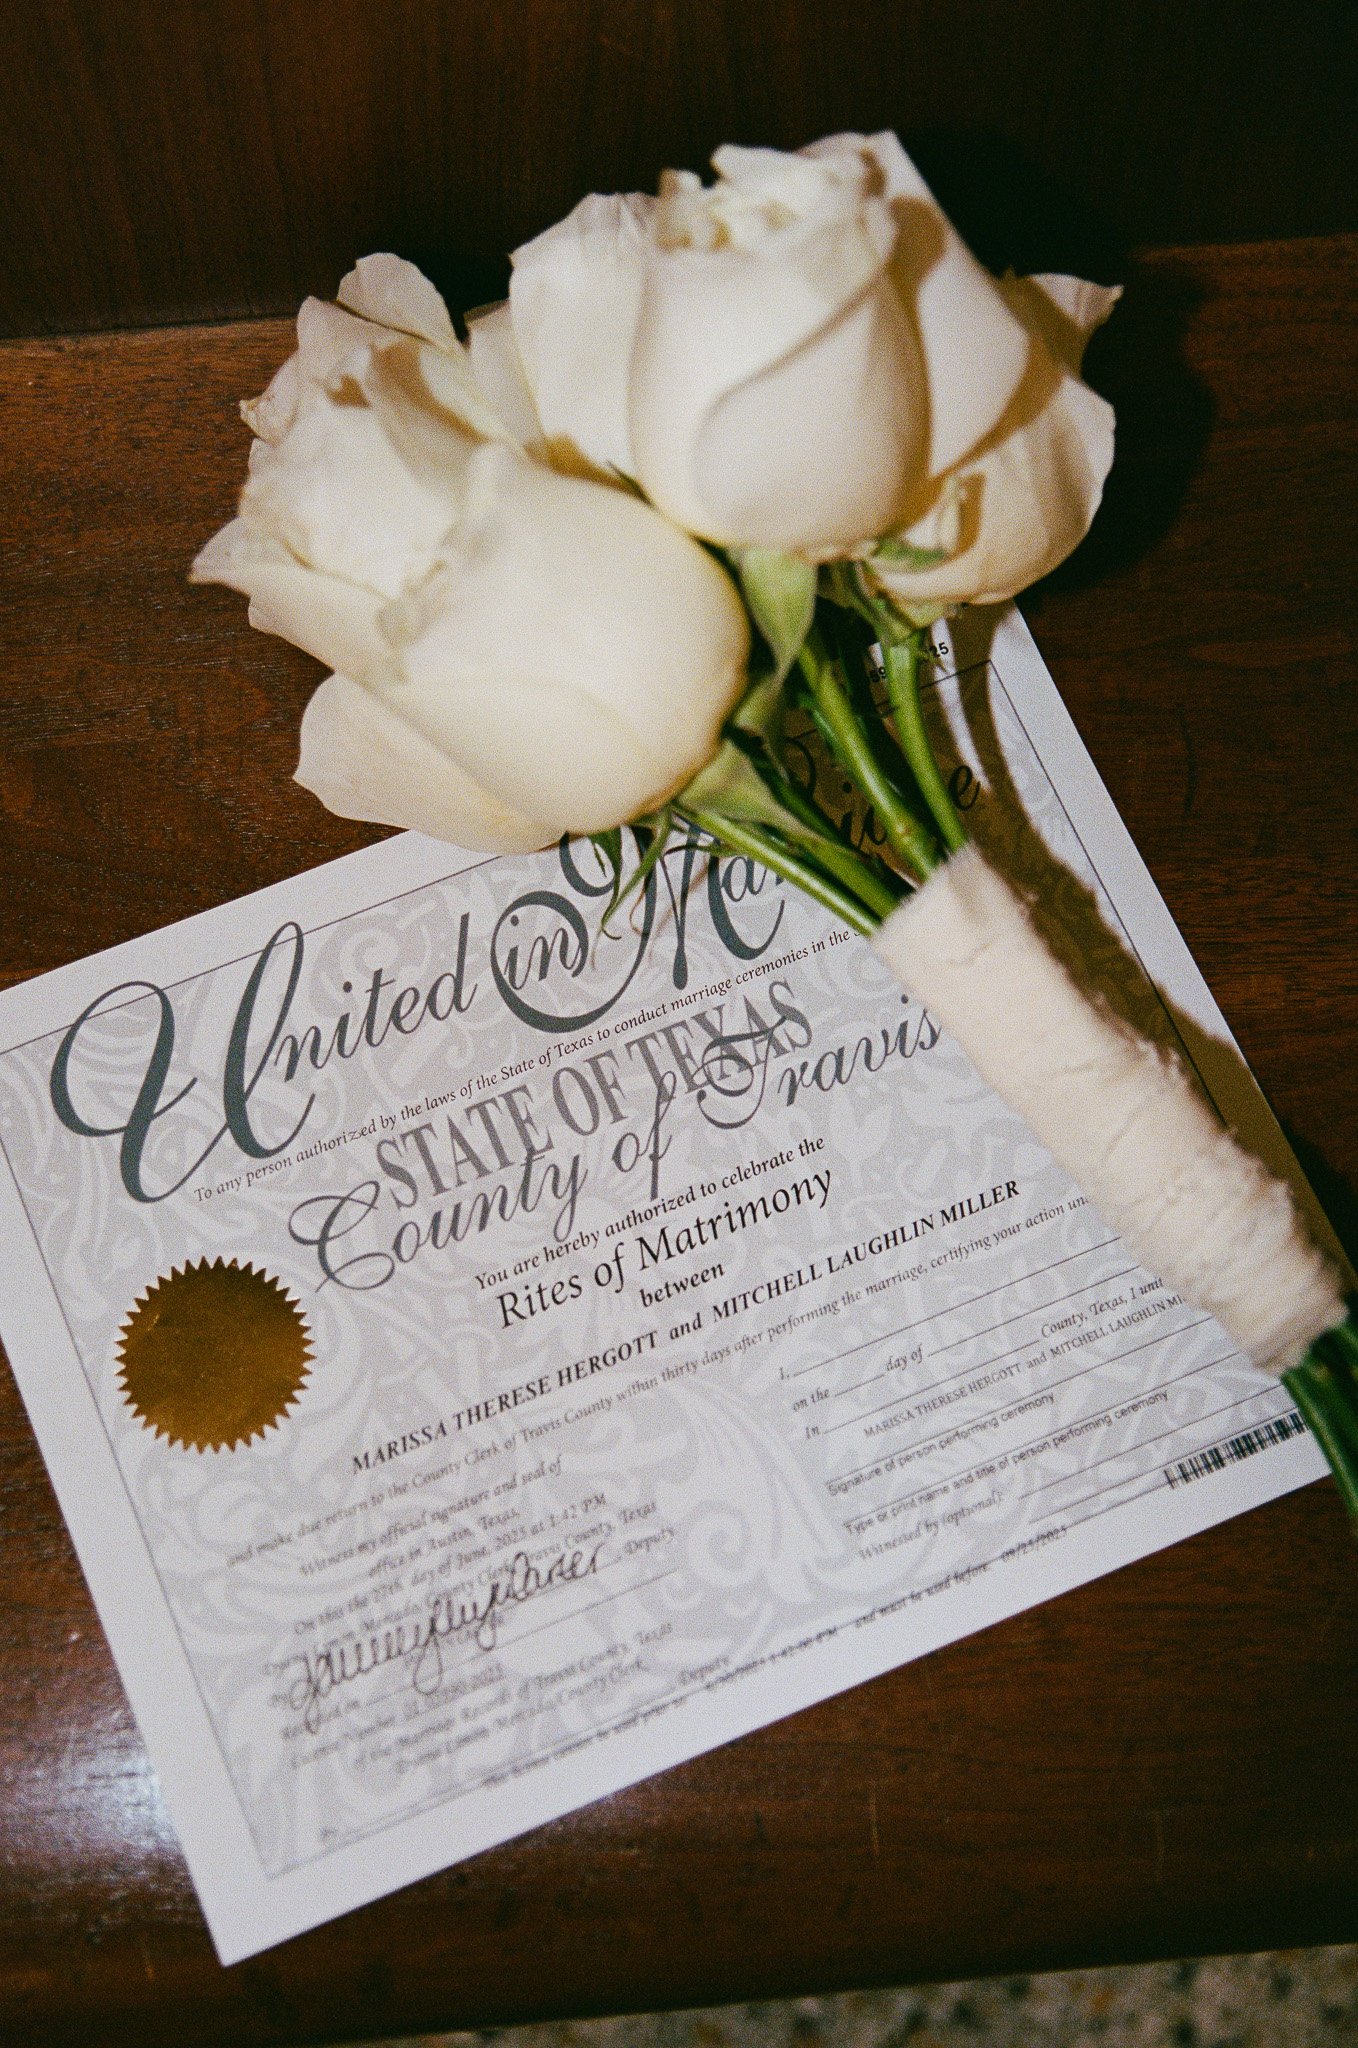 25
United in Mar
To any person authorized by the laws of the State of Texas to conduct marriage ceremonies in the
STATE OF TEXAS
County of Travis
You are hereby authorized to celebrate the
Rites of Matrimony
between
MARISSA THERESE HERGOTT and MITCHELL LAUGHLIN MILLER
and make due return to the County Clerk of Travis County within thirty days after performing the marriage, certifying your action
Witness my official signature and seal of
office in Austin, Texas,
On this the day of June, 2025 at 1:42 PM
County Clerk, Travis County, Texas
Deputy
of the Marriage Records of Travis County, Texas
County Clerk
Deputy
I,
on the day of
In County, Texas, I
MARISSA THERESE HERGOTT and MITCHELL LAUGHLIN
Signature of person performing ceremony
Type or print name and title of person performing ceremony
Witnessed by (optional):
and must be used before